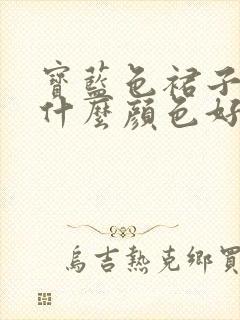 寶藍色裙子
什麼顏色好
烏吉熱克鄉買